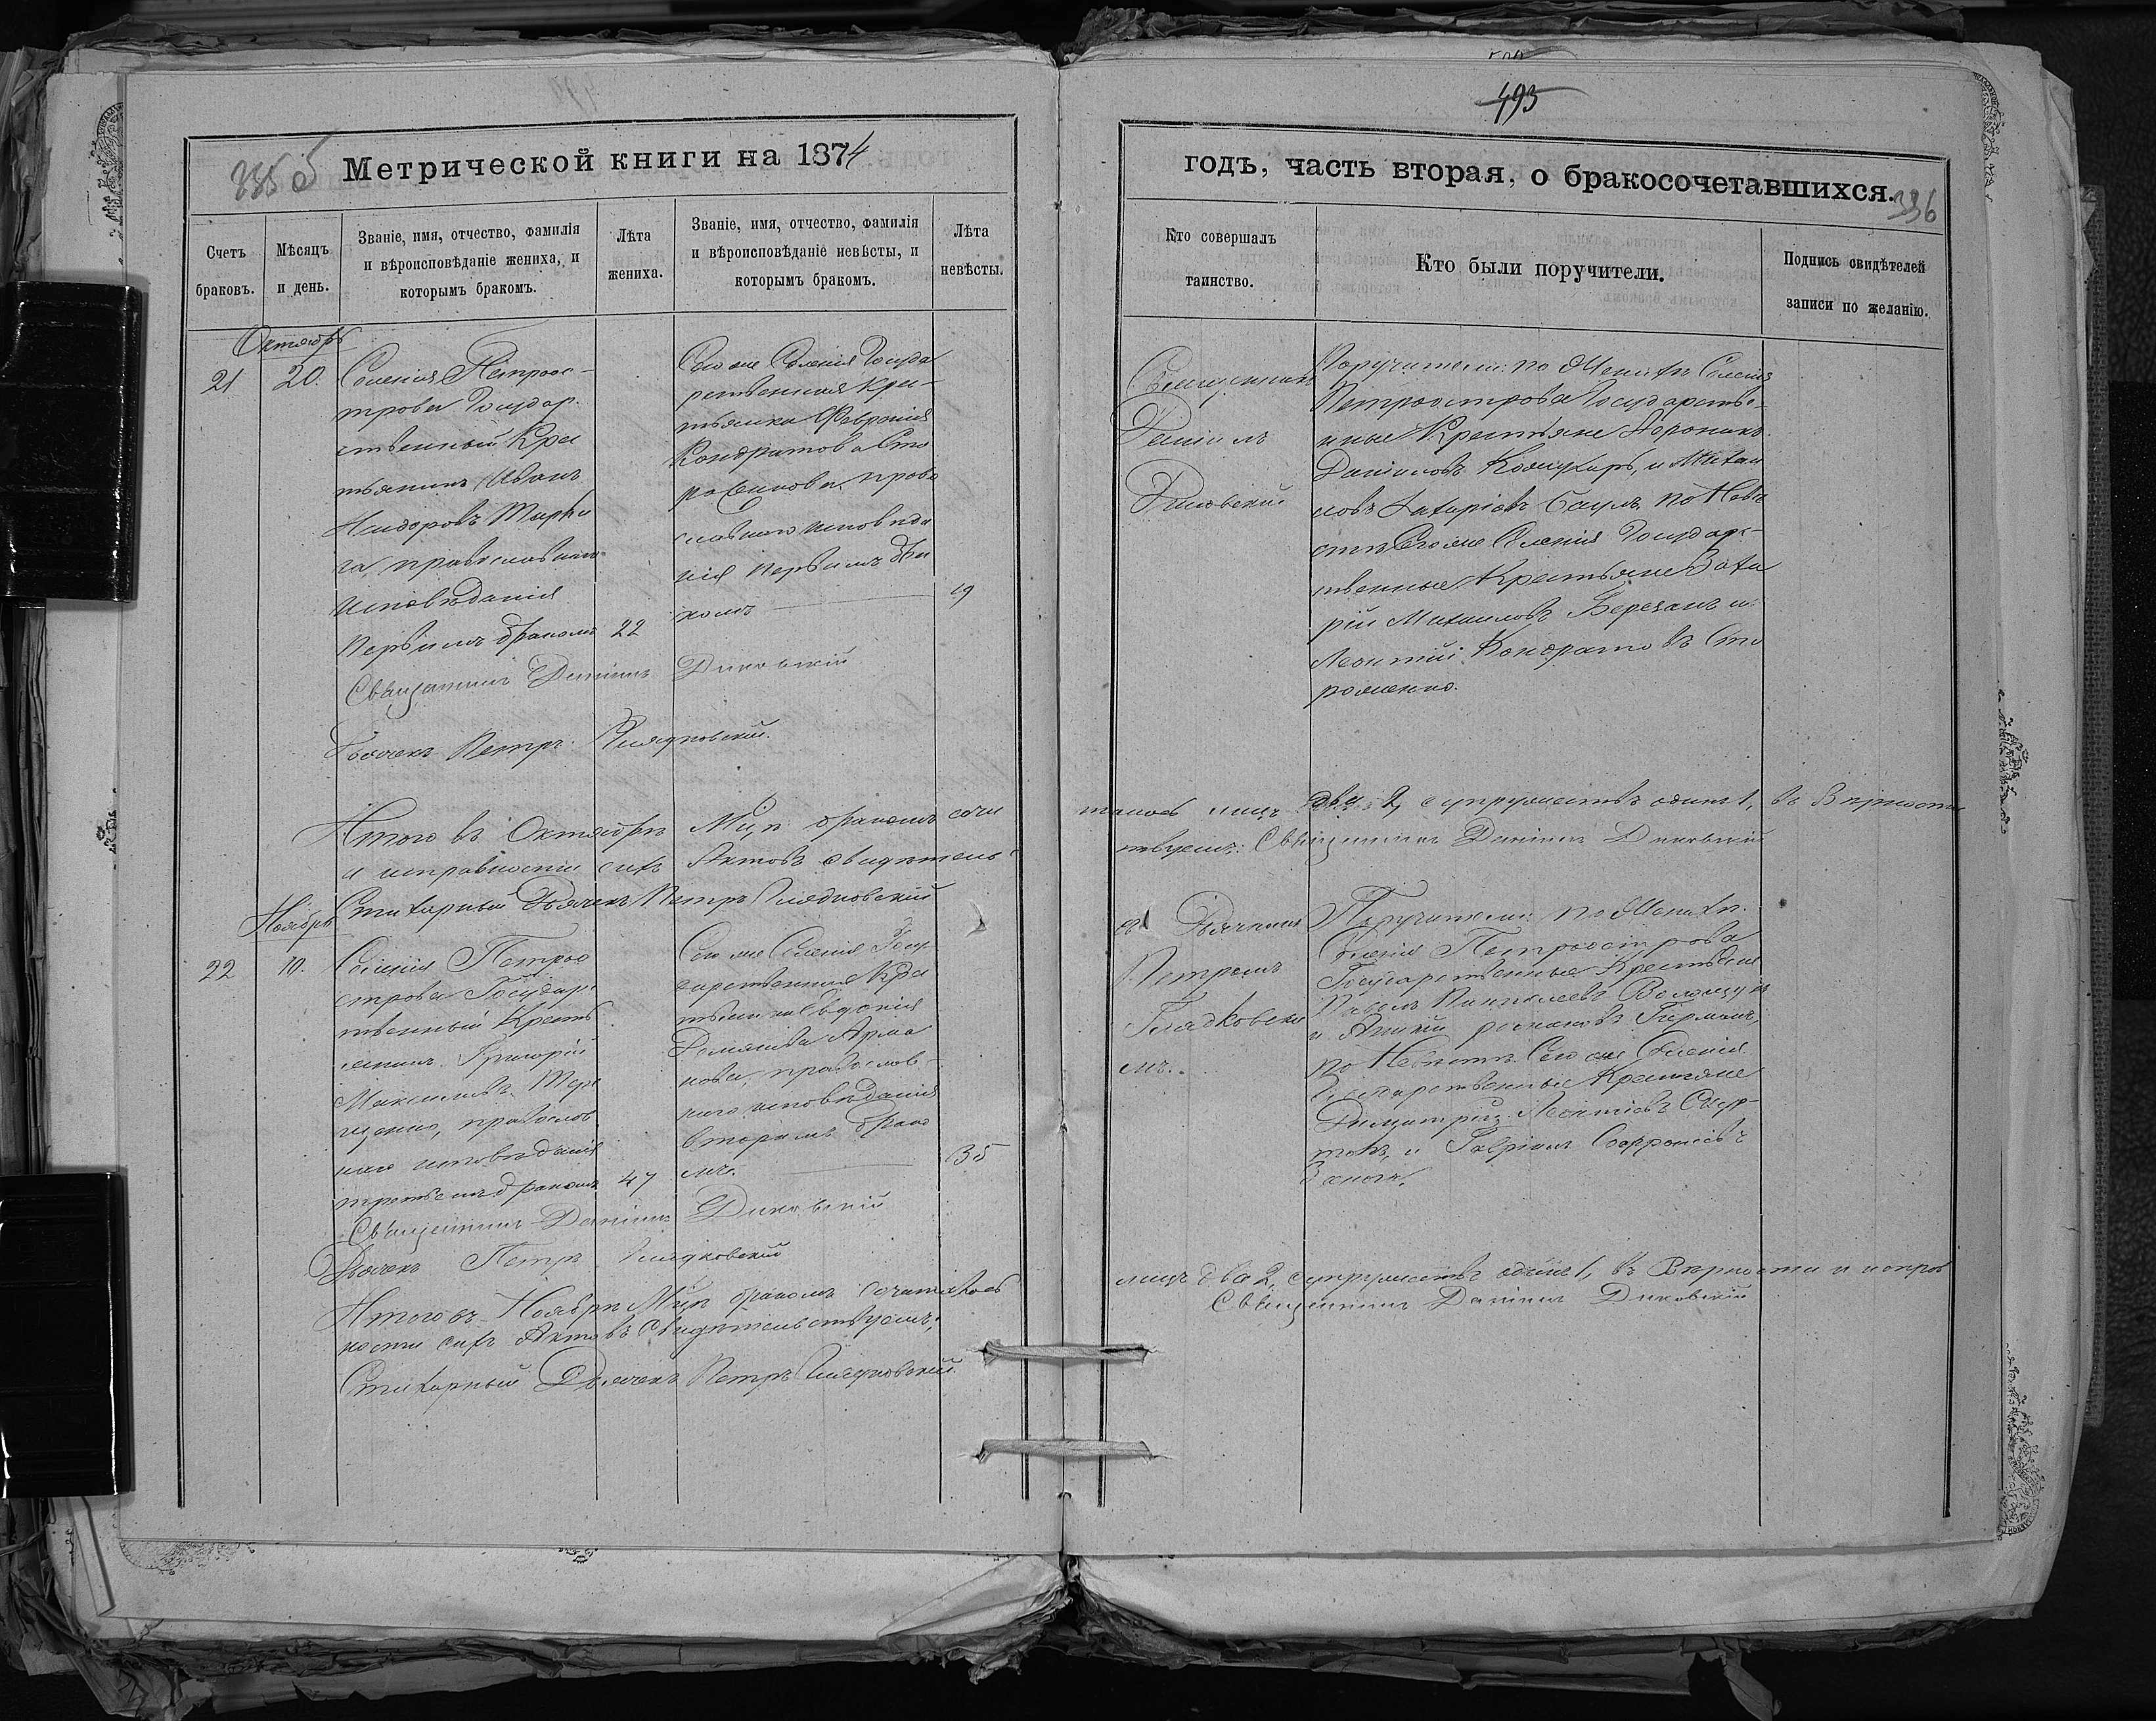 493
335 об
Метрической книги на 1874
годъ, часть вторая, о бракосочетавшихся.
336
Счетъ браковъ.
Мѣсяцъ и день.
Званіе, имя, отчество, фамилія
и вѣроисповѣданіе жениха, и
которымъ бракомъ.
Лѣта
жениха.
Званіе, имя, отчество, фамилія
и вѣроисповѣданіе невѣсты, и
которымъ бракомъ.
Лѣта
невѣсты.
Кто совершалъ
таинство.
Кто были поручители.
Подпись свидѣтелей
записи по желанію.
Октябрь
21
20.
Селенія Петроос-
трова Государ-
ственный Крес
тьянинъ Иванъ
Исидоровъ
православнаго
исповѣданія
первымъ бракомъ 22
Того же Селенія Госуда
рственная Крес-
тьянка Февронія
Кондратова Сто
право
славнаго исповѣда
нія первымъ бра
комъ 19
Священникъ
Даніилъ
Диковскій
Поручители: по Женихѣ Селенія
Петроострова Государстве-
нные Крестьяне
Даніиловъ и Михаи
по Невѣ
стѣ Того же Селенія Государс-
твенные Крестьяне Заха
рій Михаиловъ Березанъ и
Леонтій Кондратовъ Сто
роженко.
Священникъ Даніилъ Диковскій
Дьячекъ Петръ Гладковскій.
Итого въ Октябрѣ Мцѣ бракомъ соче
талось лицъ два 2, супружествъ одинъ 1, въ вѣрности
и исправности сихъ Актовъ свидѣтельс
твуемъ: Священникъ Даніилъ Диковскій
Стихарный Дьячекъ Петръ Гладковскій
Ноябрь
22
10.
Селенія Петроо
строва Государс
твенный Кресть
янинъ Григорій
Максимовъ Тере
щенко, православ
наго исповѣданія
третьимъ бракомъ 47
Того же Селенія Госу-
дарственная Крес
тьянка Евдокія
Демянова
православ-
наго исповѣданія
вторымъ брако
мъ. 35
съ Дьячкомъ
Петромъ
Гладковски
мъ.
Поручители: по Женихѣ
Селенія Петроострова
Государственные Крестьяне
Павелъ
и
по Невѣстѣ Того же Селенія
Государственные Крестьяне
Димитрій Леонтіевъ
и Гавріилъ Софроніевъ
Священникъ Даніилъ Диковскій
Дьячекъ Петръ Гладковскій
Итого въ Ноябрѣ Мцѣ бракомъ сочеталось
лицъ два 2, супружествъ одинъ 1, въ вѣрности и исправ
ности сихъ Актовъ свидѣтельствуемъ:
Священникъ Даніилъ Диковскій
Стихарный Дьячекъ Петръ Гладковскій.